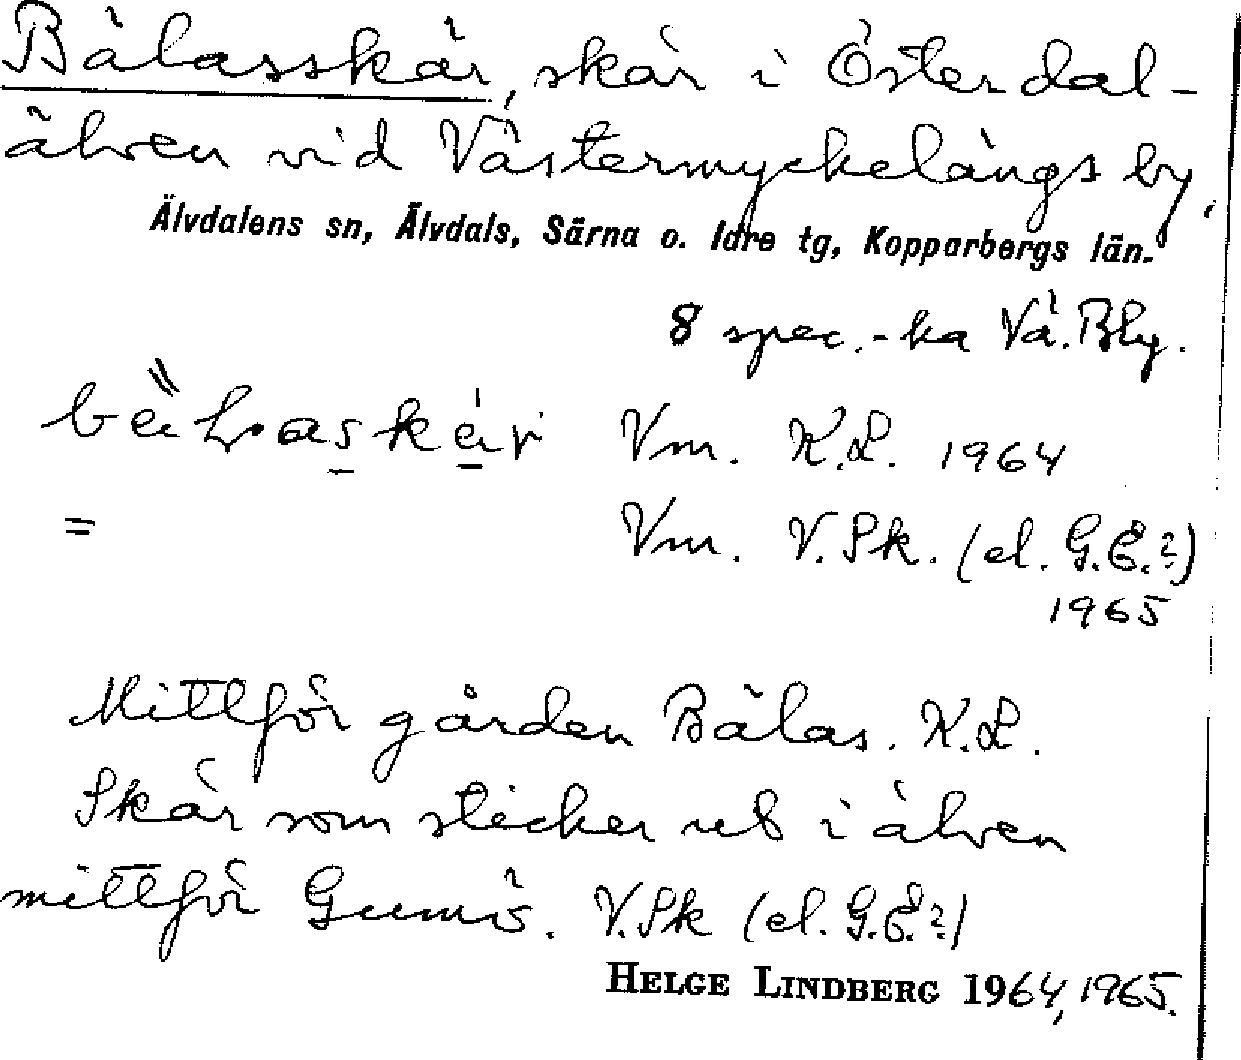 Bälasskär, skär i Österdal-
älven vid Västermyckelängs by.
Älvdalens sn, Älvdals, Särna o. Idre tg, Kopparbergs län.
8 spec.-ka Vä. Bly.
Vm. K.L. 1964
= Vm. V.Sk. (el. G.E.?)
1965
Mittför gården Bälas. K.L.
Skär som sticker ut i älven
mittför Gumö. V.Sk (el. G.E.?)
HELGE LINDBERG 1964, 1965.